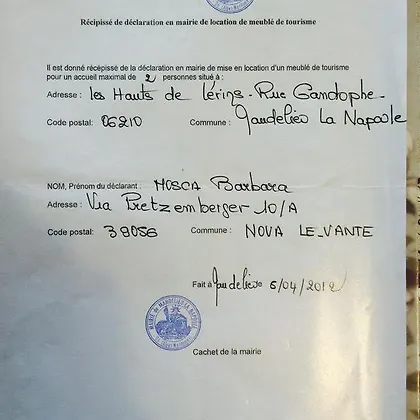 Récipissé de déclaration en mairie de location de meublé de tourisme
Il est donné récépissé de la déclaration en mairie de mise en location d'un meublé de tourisme
pour un accueil maximal de 2 personnes situé à :
Adresse : les Hauts de Lérins - Rue Gandophe -
Code postal: 06210 Commune : Mandelieu La Napoule
NOM, Prénom du déclarant : MOSCA Barbara
Adresse : Via Pretzemberger 10/A
Code postal: 39056 Commune : NOVA LEVANTE
Fait à Mandelieu 6/04/2012
Cachet de la mairie